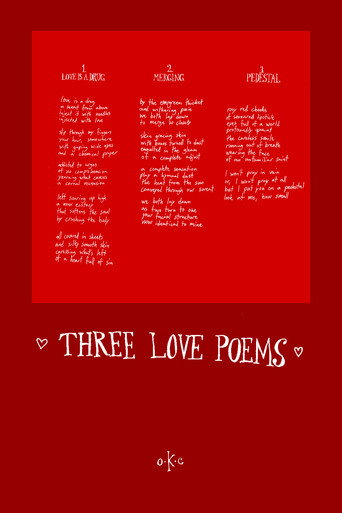 1.
LOVE IS A DRUG
love is a drug
a scent from above
inject it with needles
injected with love
slip through my fingers
your hair, somewhere
with gaping wide eyes
and a chemical prayer
addicted to urges
of no comprehension
yearning what causes
a carnal recension
left soaring up high
a near ecstasy
that sitters the soul
by crushing the body
all covered in sheets
and silky smooth skin
caressing what's left
of a heart full of sin
2.
MERGING
by the evergreen thicket
and withering pain
we both lay down
to merge by chants
skin grazing skin
with bones turned to dust
engulfed in the gleam
of a complete adjust
a complete sensation
play a hymnal duet
the heat from the sun
conveyed through our sweat
we both lay down
as two turn to one
your facial structure
now identical to mine
3.
PEDESTAL
rosy red cheeks
of smeared lipstick
eyes full of a world
profoundly against
the careless smile
running out of breath
wearing the face
of our unfamiliar saint
I won't pray in vain
or, I won't pray at all
but I put you on a pedestal
look at me, your small
♡ THREE LOVE POEMS ♡
O.K.C